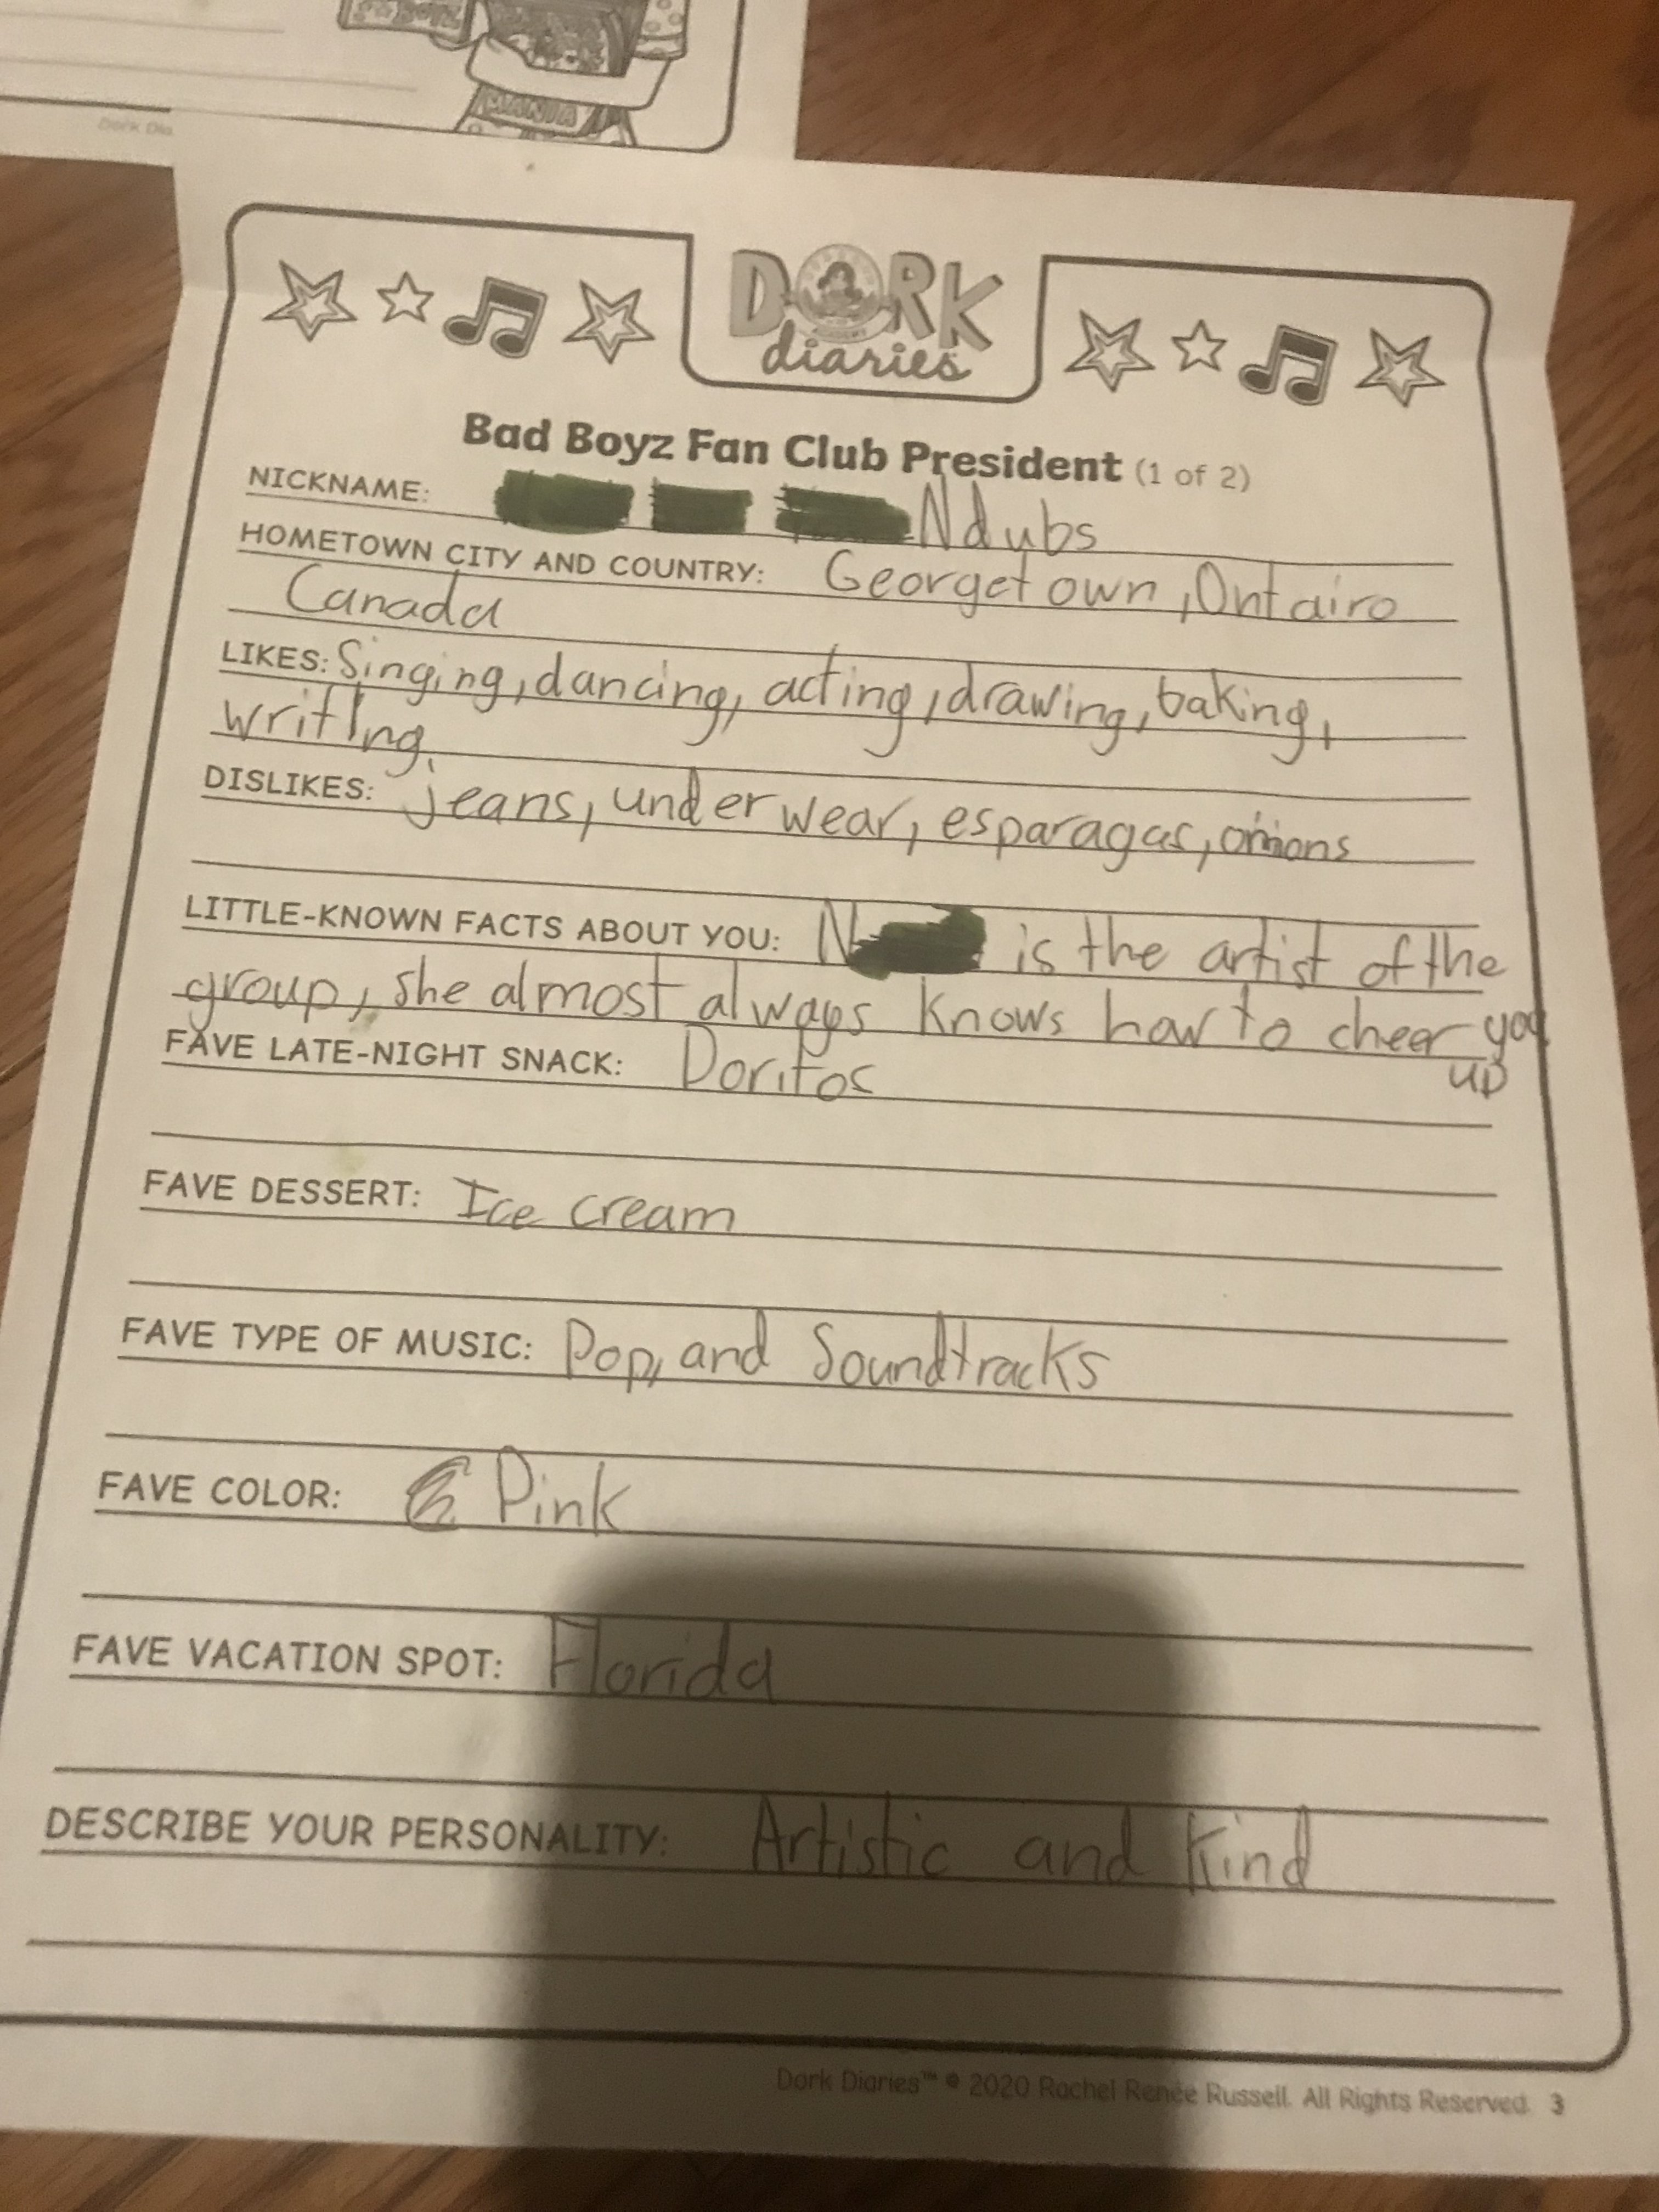 BOYZ
MANIA
Dork Dia
DORK
diaries
Bad Boyz Fan Club President (1 of 2)
NICKNAME: Ndubs
HOMETOWN CITY AND COUNTRY: Georgetown, Ontairo
Canada
LIKES: Singing, dancing, acting, drawing, baking,
writing.
DISLIKES: jeans, underwear, esparagas, onions
LITTLE-KNOWN FACTS ABOUT YOU: N is the artist of the
group, she almost always knows how to cheer you
up
FAVE LATE-NIGHT SNACK: Doritos
FAVE DESSERT: Ice cream
FAVE TYPE OF MUSIC: Pop, and Soundtracks
FAVE COLOR: Pink
FAVE VACATION SPOT: Florida
DESCRIBE YOUR PERSONALITY: Artistic and kind
Dork Diaries™ © 2020 Rachel Renée Russell. All Rights Reserved. 3